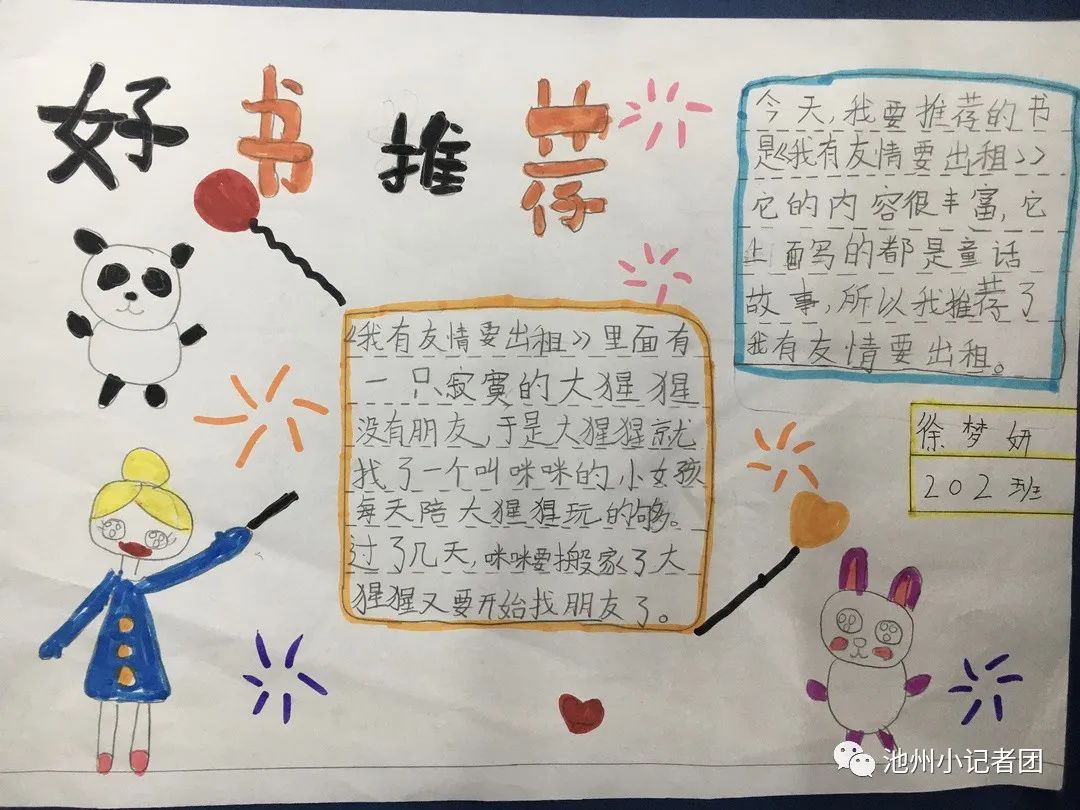 好书推荐
今天,我要推荐的书
是《我有友情要出租》
它的内容很丰富,它
上面写的都是童话
故事,所以我推荐了
我有友情要出租。
《我有友情要出租》里面有
一只寂寞的大猩猩
没有朋友,于是大猩猩就
找了一个叫咪咪的小女孩
每天陪大猩猩玩的够。
过了几天,咪咪要搬家了大
猩猩又要开始找朋友了。
徐梦妍
202班
池州小记者团